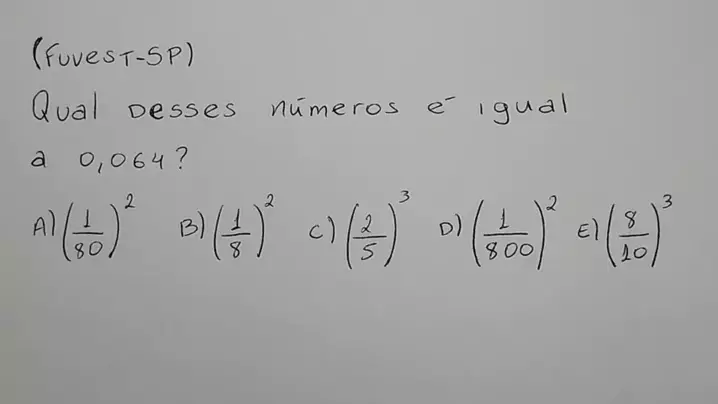 (Fuvest-SP)
Qual desses números é igual
a 0,064?
A) (1/80)² B) (1/8)² C) (2/5)³ D) (1/800)² E) (8/10)³